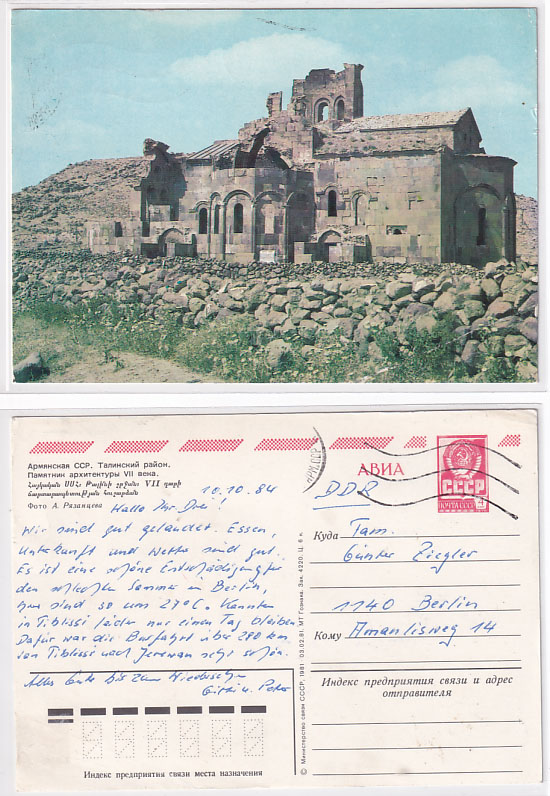 Армянская ССР. Талинский район.
Памятник архитектуры VII века.
Հայկական ՍՍՀ։ Թալինի շրջան։ VII դարի
ճարտարապետության հուշարձան
Фото А. Рязанцева
10.10.84
Hallo Ihr Drei!
Wir sind gut gelandet. Essen,
Unterkunft und Wetter sind gut.
Es ist eine schöne Entschädigung für
den schlechten Sommer in Berlin,
hier sind so um 27°C. Konnten
in Tiblissi leider nur einen Tag bleiben
Dafür war die Busfahrt über 280 km
von Tiblissi nach Jerewan sehr schön.
Alles Gute bis zum Wiedersehen
u. Peter
АВИА
СССР
ПОЧТА СССР
DDR
Куда Fam.
Günter Ziegler
1140 Berlin
Кому Amanlisweg 14
Индекс предприятия связи и адрес
отправителя
Индекс предприятия связи места назначения
© Министерство связи СССР, 1981 03.02.81. МТ Гознака. Зак. 4220. Ц. 6 к.